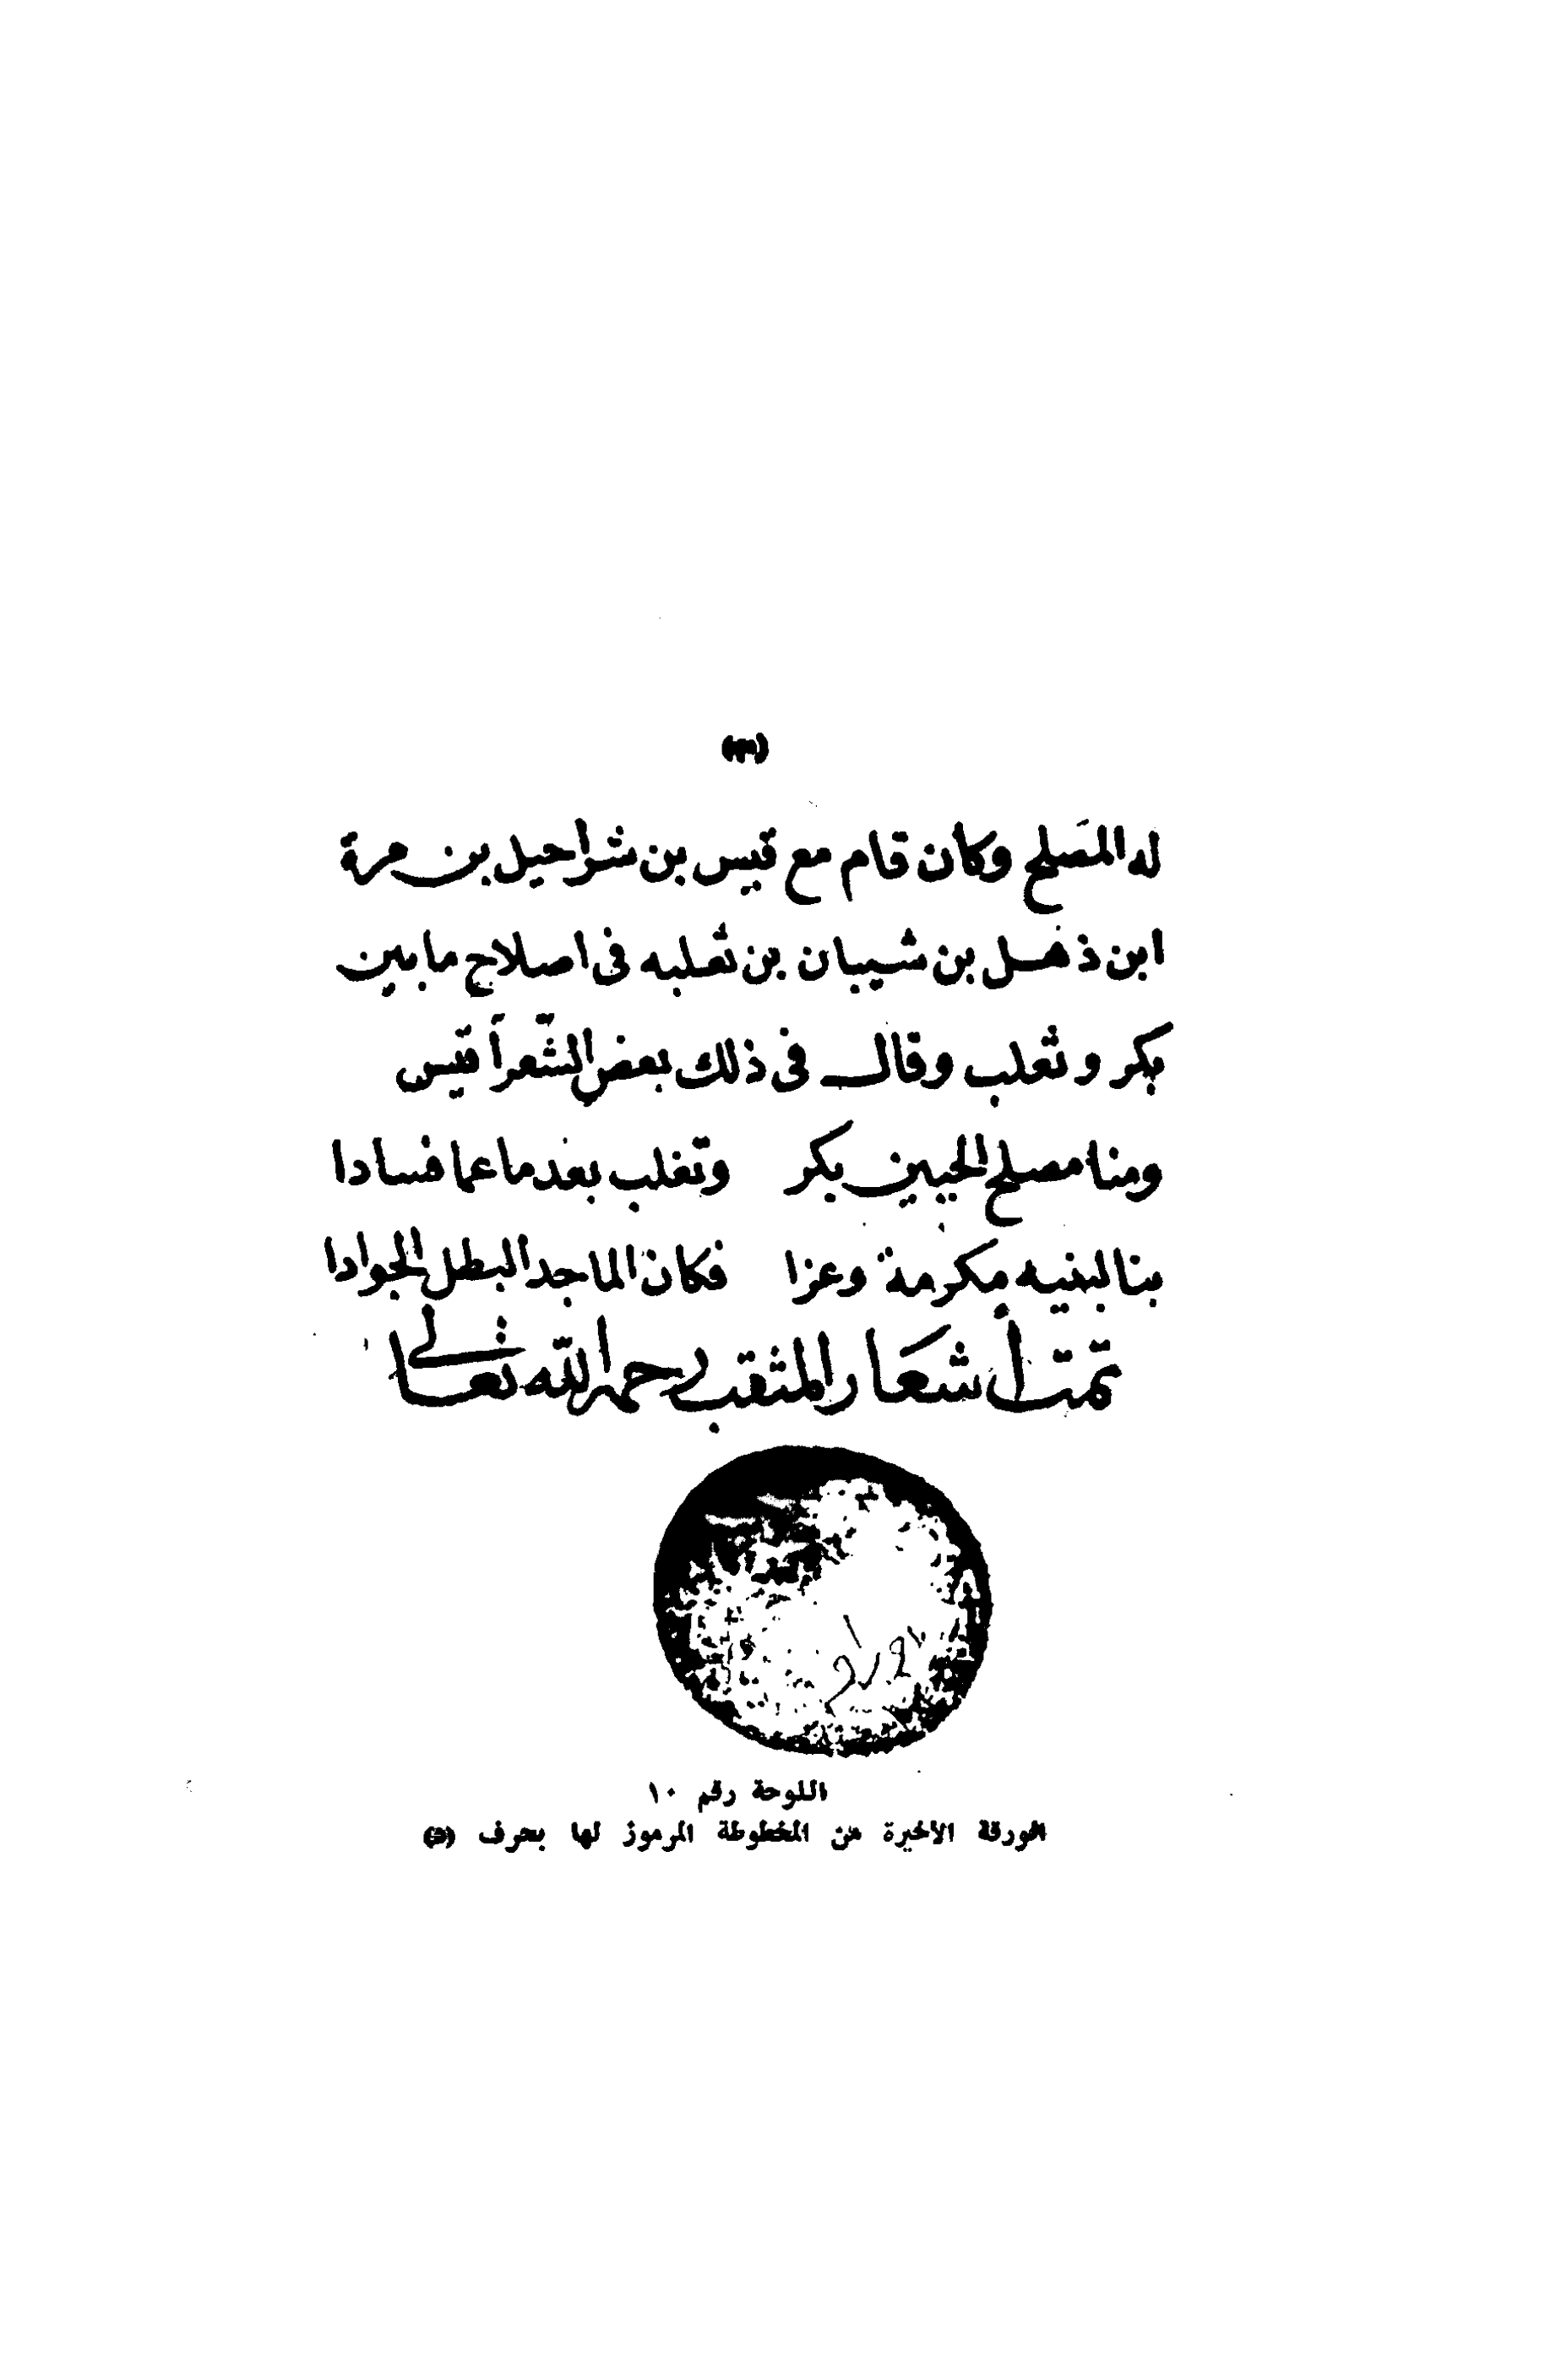 له المصلح وكان قام مع قيس بن شراحيل بن مرة
ابن ذهل بن شيبان بن ثعلبه فى اصلاح ما بين
بكر وتغلب وقال فى ذلك بعض الشّعرآ قيس
ومنا مصلح الحيين بكر وتغلب بعد ما عما فسادا
بنا لبنيه مكرمة وعزا فكان الماجد البطل الجوادا
تمت أشعار المثقب رحمه الله تعالى
اللوحة رقم ١٠
الورقة الأخيرة من المخطوطة المرموز لها بحرف